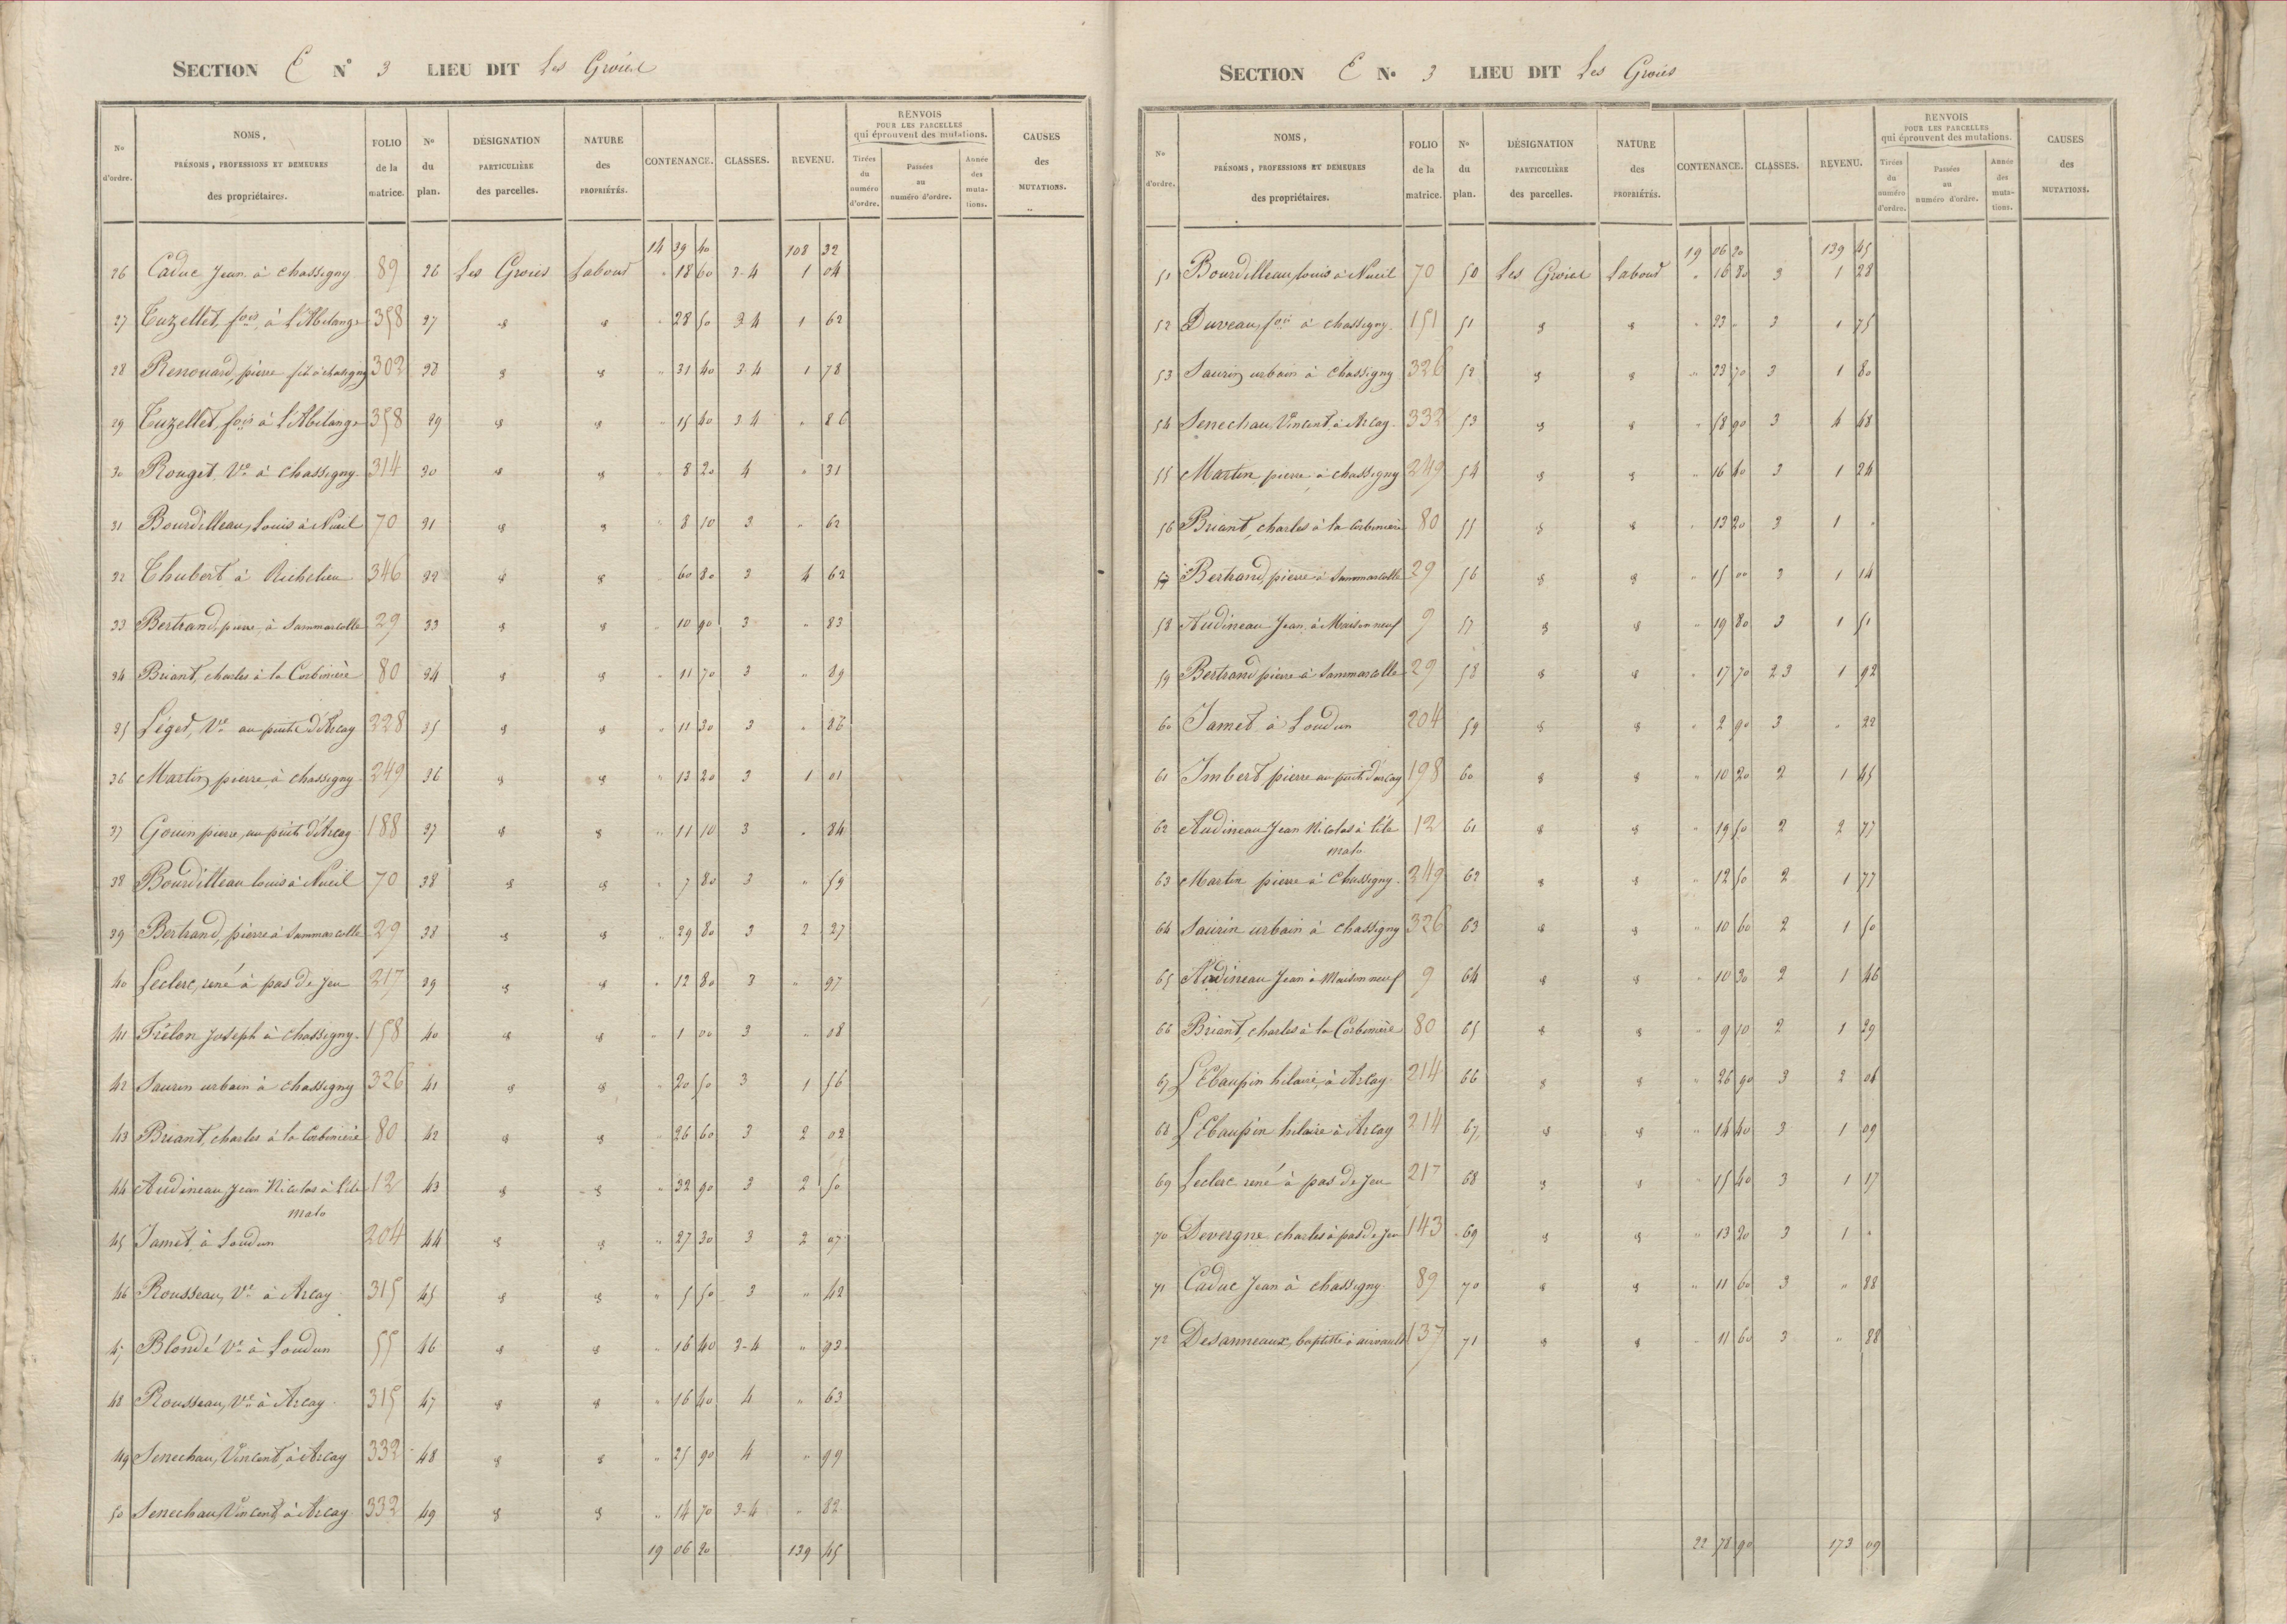 SECTION E N° 3 LIEU DIT Les Groies
N° d'ordre. | NOMS, PRÉNOMS, PROFESSIONS ET DEMEURES des propriétaires. | FOLIO de la matrice. | N° du plan. | DÉSIGNATION PARTICULIÈRE des parcelles. | NATURE des PROPRIÉTÉS. | CONTENANCE. | CLASSES. | REVENU. | RENVOIS POUR LES PARCELLES qui éprouvent des mutations. | Tirées du numéro d'ordre. | Passées au numéro d'ordre. | Année des muta-tions. | CAUSES des MUTATIONS.
14 39 40 108 32
26 Caduc Jean à chassigny 89 26 Les Groies Labour " 18 60 3-4 1 04
27 Tuzellet, fois à l'Abilange 358 27 " " " 28 50 3 4 1 62
28 Renouard, pierre fils à chasigny 302 28 " " " 31 40 3 4 1 78
29 Tuzellet, fois à l'Abilange 358 29 " " " 15 40 3 4 " 86
30 Rouget, Ve à chassigny 314 30 " " 8 20 4 " 31
31 Bourdilleau, Louis à Nueil 70 31 " " " 8 10 3 " 62
32 Thubert à Richelieu 346 32 " " 60 80 3 4 62
33 Bertrand, pierre à Sammarcolle 29 33 " " " 10 90 3 " 83
34 Briant, charles à la Corbinière 80 34 " " " 11 70 3 " 89
35 Léger, Ve au puits d'Arcay 228 35 " " " 11 30 3 " 86
36 Martin, pierre à chassigny 249 36 " " " 13 20 3 1 01
37 Gouin pierre, au puits d'Arcay 188 37 " " " 11 10 3 " 84
38 Bourdilleau louis à Nueil 70 38 " " " 7 80 3 " 59
39 Bertrand, pierre à Sammarcolle 29 38 " " " 29 80 3 2 27
40 Leclerc, rené à pas de Jeu 217 39 " " " 12 80 3 " 97
41 Frélon Joseph à chassigny 158 40 " " " 1 00 3 " 08
42 Saurin urbain à chassigny 326 41 " " " 20 50 3 1 56
43 Briant, charles à la Corbinière 80 42 " " " 26 60 3 2 02
44 Audineau, Jean Nicolas à l'ile 12 43 " " " 32 90 3 2 50
malo
45 Jamet, à Loudun 204 44 " " " 27 30 3 2 07
46 Rousseau, Ve à Arcay 315 45 " " " 5 50 3 " 42
47 Blondé Ve à Loudun 55 46 " " " 16 40 3-4 " 92
48 Rousseau, Ve à Arcay 315 47 " " " 16 40 4 " 63
49 Senechau, Vincent, à Arcay 332 48 " " " 25 90 4 " 99
50 Senechau, Vincent, à Arcay 332 49 " " " 14 70 3-4 " 82
19 06 20 139 45
SECTION E N° 3 LIEU DIT Les Groies
N° d'ordre. | NOMS, PRÉNOMS, PROFESSIONS ET DEMEURES des propriétaires. | FOLIO de la matrice. | N° du plan. | DÉSIGNATION PARTICULIÈRE des parcelles. | NATURE des PROPRIÉTÉS. | CONTENANCE. | CLASSES. | REVENU. | RENVOIS POUR LES PARCELLES qui éprouvent des mutations. | Tirées du numéro d'ordre. | Passées au numéro d'ordre. | Année des muta-tions. | CAUSES des MUTATIONS.
19 06 20 139 45
51 Bourdilleau, louis à Nueil 70 50 Les Groies Labour " 16 80 3 1 28
52 Duveau, fois à chassigny 151 51 " " " 23 " 3 1 75
53 Saurin, urbain à chassigny 326 52 " " " 23 70 3 1 80
54 Senechau, Vincent, à Arcay 332 53 " " " 58 90 3 4 48
55 Martin pierre à chassigny 249 54 " " " 16 40 3 1 24
56 Briant, charles à la Corbinière 80 55 " " " 13 20 3 1 "
57 Bertrand, pierre à Sammarcolle 29 56 " " " 15 00 3 1 14
58 Audineau Jean à Maison neuf 9 57 " " " 19 80 3 1 51
59 Bertrand pierre à Sammarcolle 29 58 " " " 17 70 2 3 1 92
60 Jamet à Loudun 204 59 " " " 2 90 3 " 22
61 Imbert, pierre au puits d'arcay 198 60 " " " 10 20 2 1 45
62 Audineau Jean Nicolas à l'ile 12 61 " " " 19 50 2 2 77
malo
63 Martin pierre à Chassigny 249 62 " " " 12 50 2 1 77
64 Saurin urbain à chassigny 326 63 " " " 10 60 2 1 50
65 Audineau Jean à Maison neuf 9 64 " " " 10 30 2 1 46
66 Briant, charles à la Corbinière 80 65 " " " 9 10 2 1 29
67 L'Ebaupin hilaire, à Arcay 214 66 " " " 26 90 3 2 06
68 L'Ebaupin hilaire à Arcay 214 67 " " " 14 40 3 1 09
69 Leclerc rené à pas de Jeu 217 68 " " " 15 40 3 1 17
70 Devergne charles à pas de Jeu 143 69 " " " 13 20 3 1 "
71 Caduc Jean à chassigny 89 70 " " " 11 60 3 " 88
72 Desanneaux, baptiste à airvault 137 71 " " " 11 60 3 " 88
22 78 90 173 09